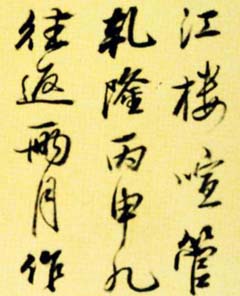 江楼喧管
乾隆丙申九
往返兩月作